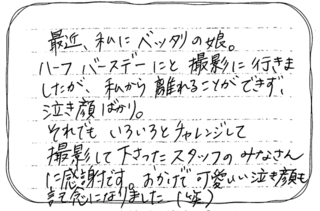 最近、私にベッタリの娘。
ハーフバースデーにと撮影に行きま
したが、私から離れることができず、
泣き顔ばかり。
それでもいろいろとチャレンジして
撮影して下さったスタッフのみなさん
に感謝です。おかげで可愛いい泣き顔も
記念になりました(笑)